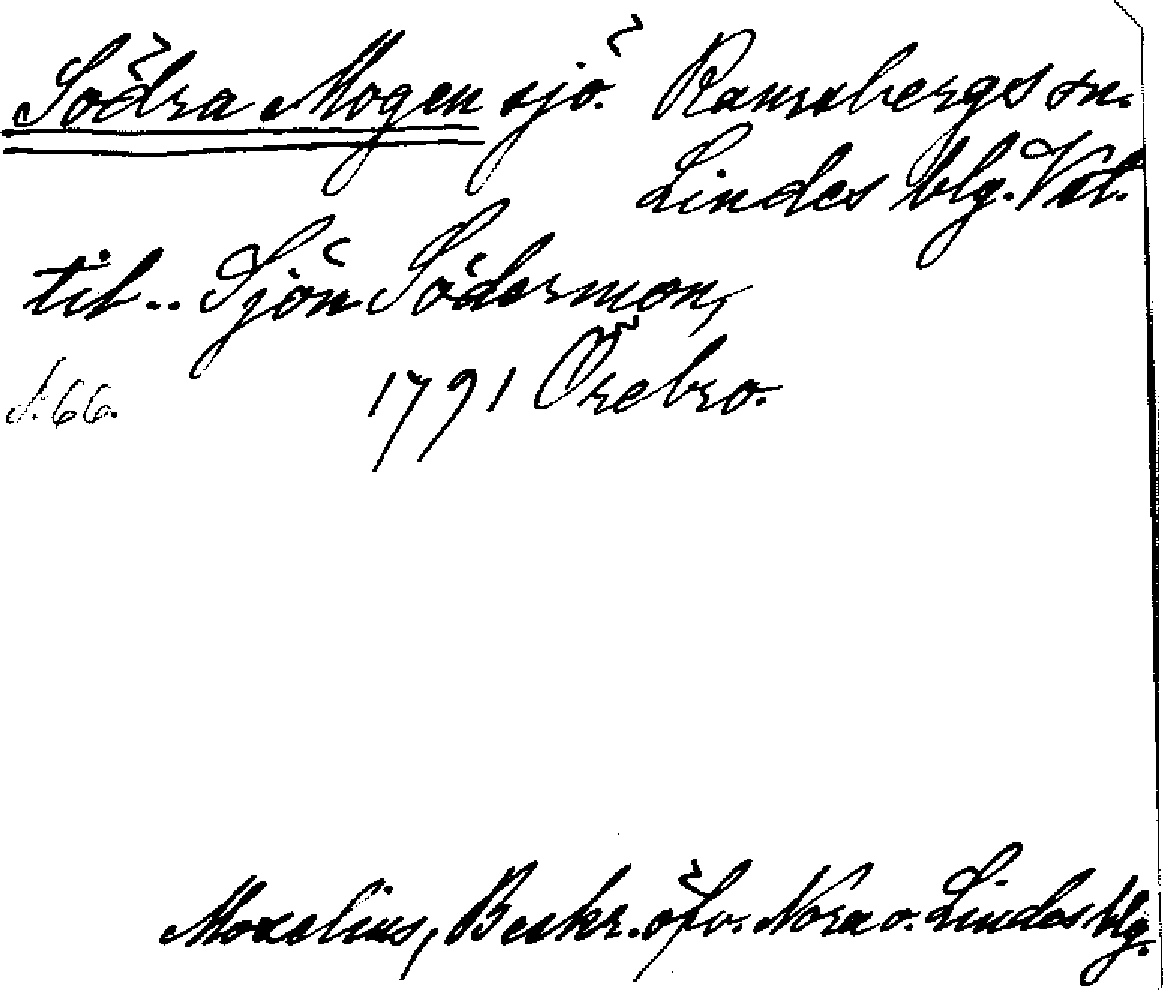 Södra Mogen sjö. Ramsbergs sn.
Lindes blg. Vstl.
till.. Sjön Södermon,
s. 66. 1791 Örebro.
Moxelius, Beskr. öfv. Nora o. Lindes blg.